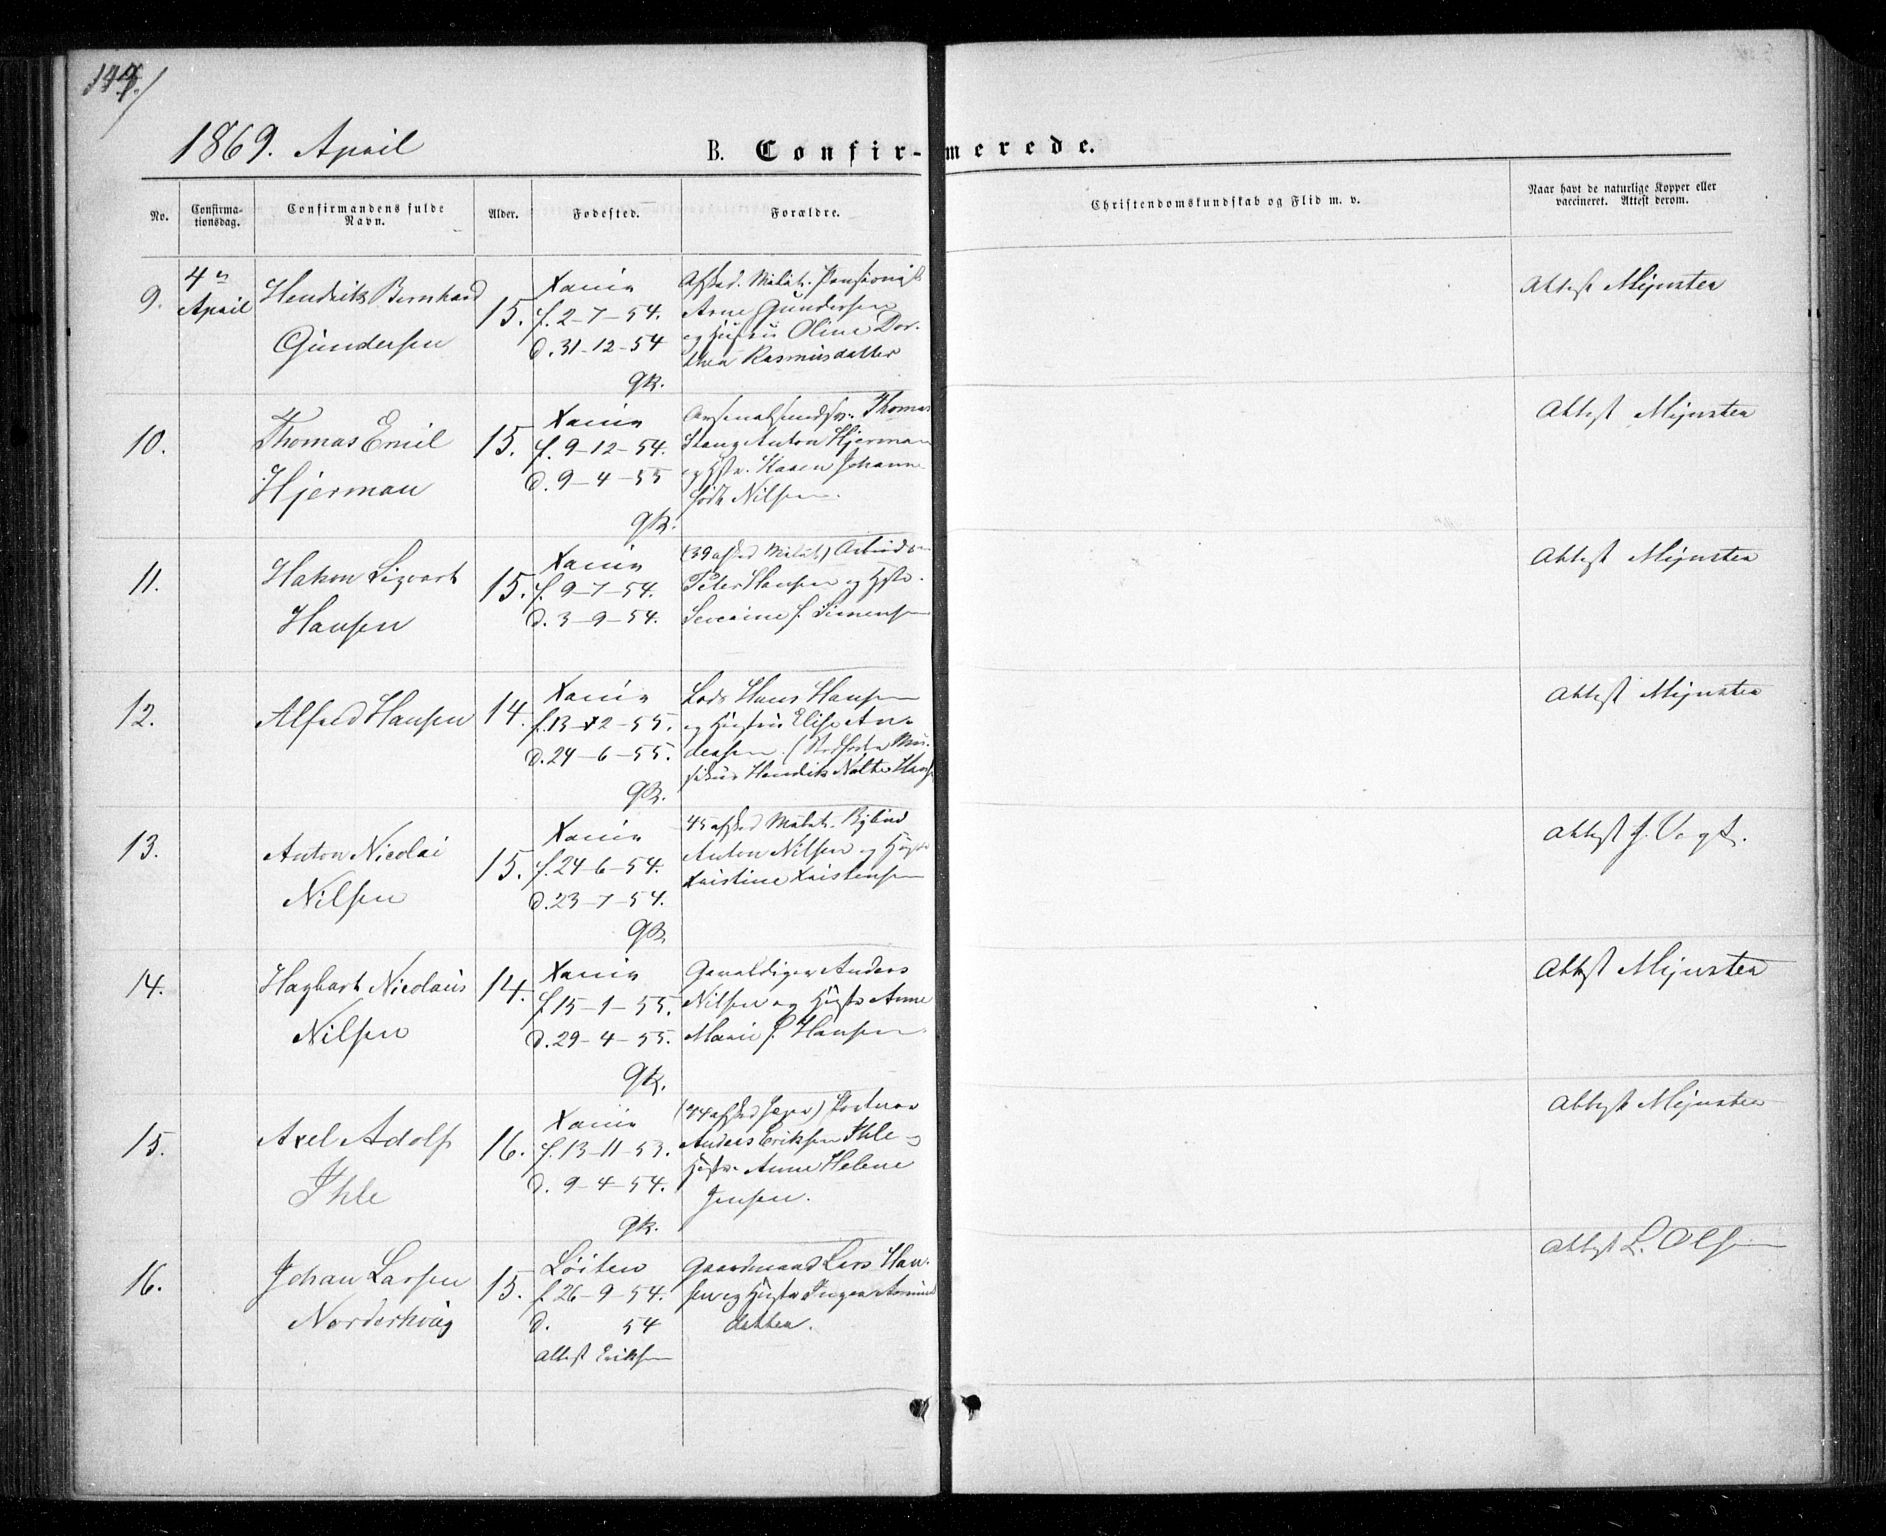 1869. April
B. Confirmerede.
No.
Confirma-
tionsdag.
Confirmandens fulde
Navn.
Alder.
Fødested.
Forældre.
Christendomskundskab og Flid m. v.
Naar havt de naturlige Kopper eller
vaccineret. Attest derom.
9.
4de
April
Hendrik Bernhard
Gundersen
15.
Xania
f. 2-7-54.
d. 31-12-54
GK.
Afsked. Milit. Pensionist
Arne Gundersen
og Hustru Oline Dor-
thea Rasmusdatter
Attest Mejnster
10.
Thomas Emil
Hjerman
15.
Xania
f. 9-12-54.
d. 9-4-55
GK.
Thomas
Stang Anton Hjerman
og Hstr. Karen Johanne
født Nilsen.
Attest Mejnster
11.
Hakon Sigvart
Hansen
15.
Xania
f. 9-7-54.
d. 3-9-54.
(39 afsked Milit)
Peter Hansen og Hstr.
Severine f. Simensen
Attest Mejnster
12.
Alfred Hansen
14.
Xania
f. 13-2-55.
d. 24-6-55.
GK.
Lods Hans Hansen
og Hustru Elise An-
dersen. (Stedfader Mu-
sikus Hendrik Nolte Hans
Attest Mejnster
13.
Anton Nicolai
Nilsen
15.
Xania
f. 24-6-54.
d. 23-7-54.
GK.
45 afsked Milit. Bybud
Anton Nilsen og Hust
Kristine Kristensen
Attest J. Vogt.
14.
Hagbart Nicolaus
Nilsen
14.
Xania
f. 15-1-55.
d. 29-4-55.
GK.
Gevaldiger Anders
Nilsen og Hustr Anne
Marie f. Hansen
Attest Mejnster
15.
Axel Adolf
Ihle
16.
Xania
f. 13-11-53.
d. 9-4-54.
GK.
(44 afsked Jæger) Portner
Anders Eriksen Ihle og
Hustr. Anne Helene
Jensen.
Attest Mejnster
16.
Johan Larsen
Norderhaug
15.
Løiten
f. 26-9-54.
d. 54
Attest Eriksen
Gaardmand Lars Han-
sen og Hustr Inger Amund
datter.
Attest L. Olsen